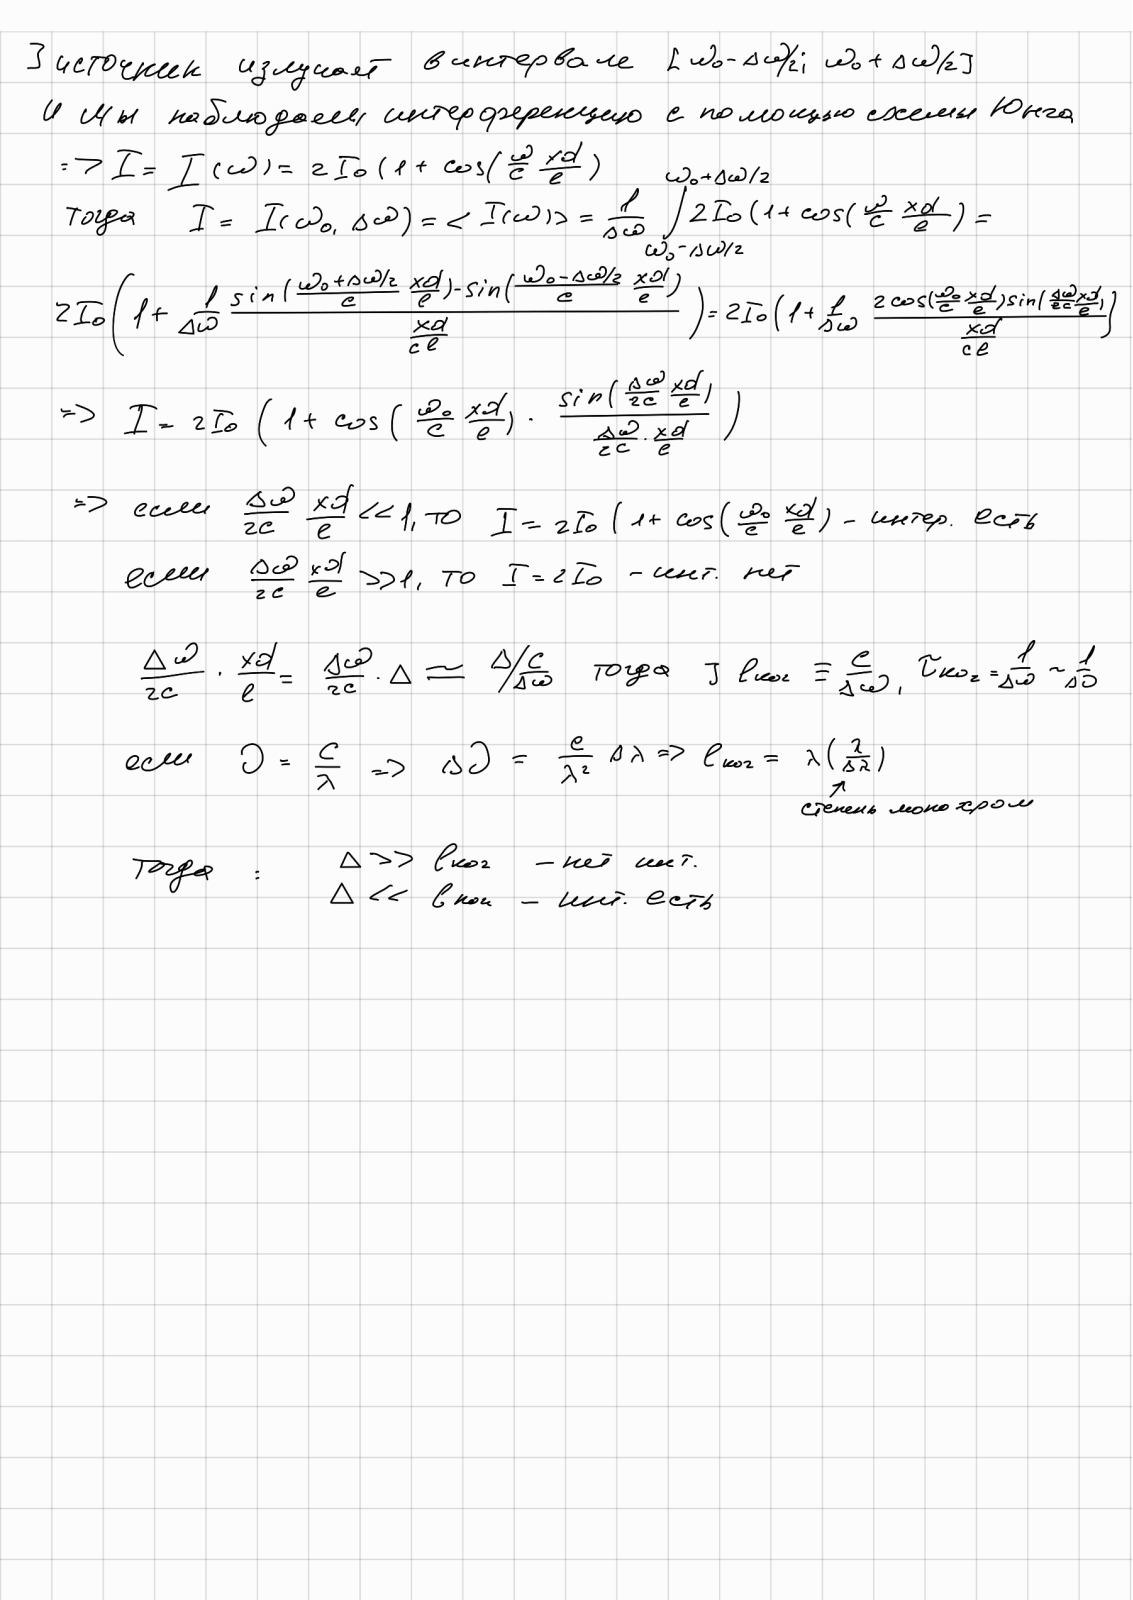 ] источник излучает в интервале [ω₀ - Δω/2; ω₀ + Δω/2]
и мы наблюдаем интерференцию с помощью схемы Юнга
=> I = I(ω) = 2I₀(1 + cos(ω/c xd/l)
тогда I = I(ω₀, Δω) = <I(ω)> = 1/Δω ∫_{ω₀-Δω/2}^{ω₀+Δω/2} 2I₀(1 + cos(ω/c xd/l) =
2I₀(1 + 1/Δω (sin((ω₀+Δω/2)/c xd/l) - sin((ω₀-Δω/2)/c xd/l))/(xd/cl)) = 2I₀(1 + 1/Δω (2cos(ω₀/c xd/l) sin(Δω/2c xd/l))/(xd/cl))
=> I = 2I₀(1 + cos(ω₀/c xd/l) · sin(Δω/2c xd/l)/(Δω/2c · xd/l))
=> если Δω/2c xd/l << 1, то I = 2I₀(1 + cos(ω₀/c xd/l) - интер. есть
если Δω/2c xd/l >> 1, то I = 2I₀ - инт. нет
Δω/2c · xd/l = Δω/2c · Δ ≃ Δ/(c/Δω) тогда ] lког ≡ c/Δω, τког = 1/Δω ~ 1/Δν
если ν = c/λ => Δν = c/λ² Δλ => lког = λ(λ/Δλ)
↑
степень монохром
тогда : Δ >> lког - нет инт.
Δ << lког - инт. есть